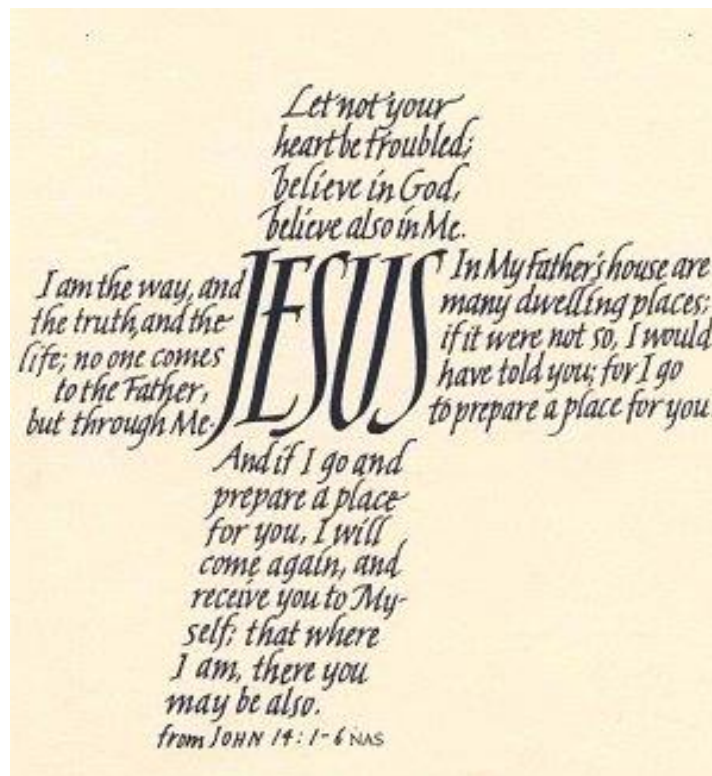 Let not your
heart be troubled;
believe in God,
believe also in Me.
I am the way, and
the truth, and the
life; no one comes
to the Father,
but through Me.
JESUS
In My Father's house are
many dwelling places;
if it were not so, I would
have told you; for I go
to prepare a place for you
And if I go and
prepare a place
for you, I will
come again, and
receive you to My-
self; that where
I am, there you
may be also.
from JOHN 14:1-6 NAS